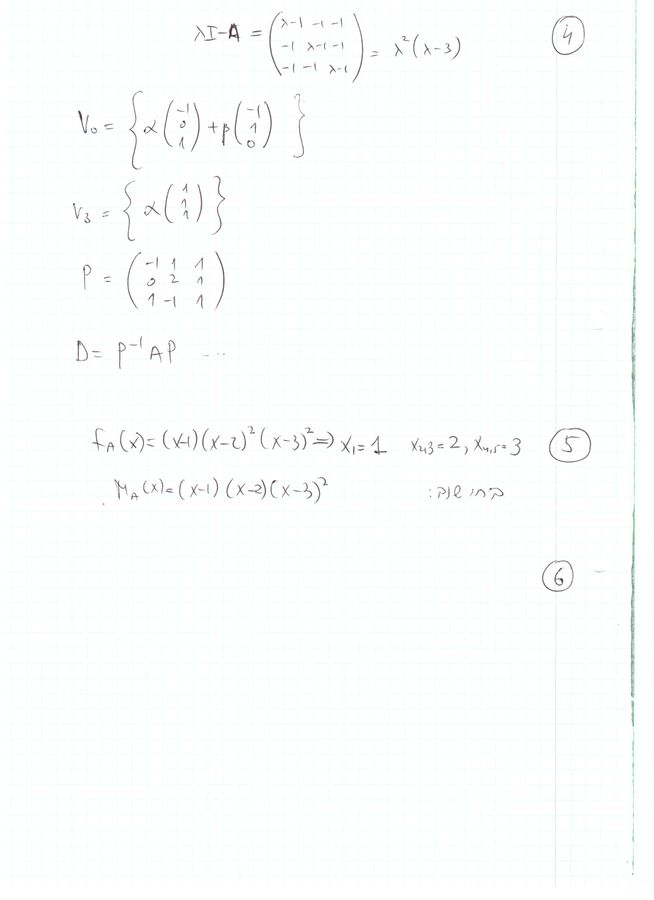 ④
λI-A = ( λ-1 -1 -1 ; -1 λ-1 -1 ; -1 -1 λ-1 ) = λ²(λ-3)
V₀ = { α( -1 ; 0 ; 1 ) + β( -1 ; 1 ; 0 ) }
V₃ = { α( 1 ; 1 ; 1 ) }
P = ( -1 1 1 ; 0 2 1 ; 1 -1 1 )
D = P⁻¹AP ...
⑤
f_A(x) = (x-1)(x-2)²(x-3)² => x₁ = 1 x₂,₃ = 2, x₄,₅ = 3
M_A(x) = (x-1)(x-2)(x-3)²
⑥